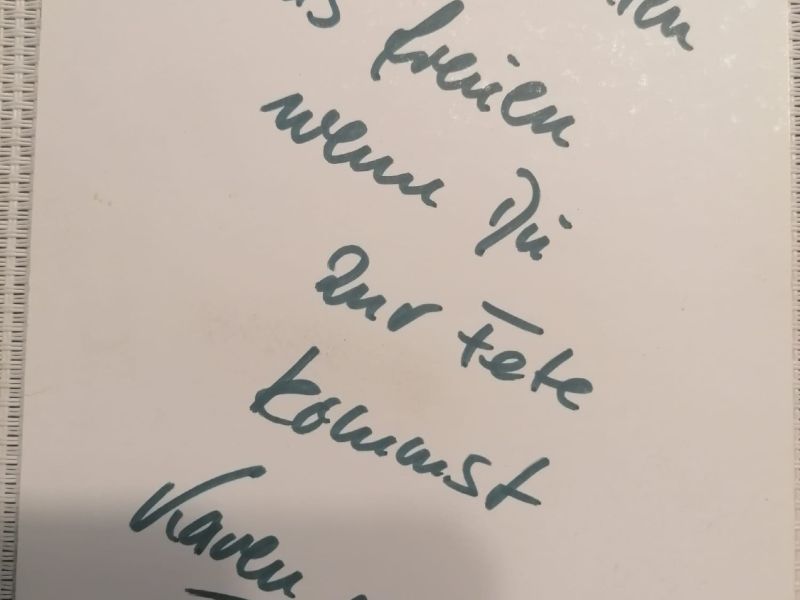 freuen
wenn Du
zur Fete
kommst
Karen